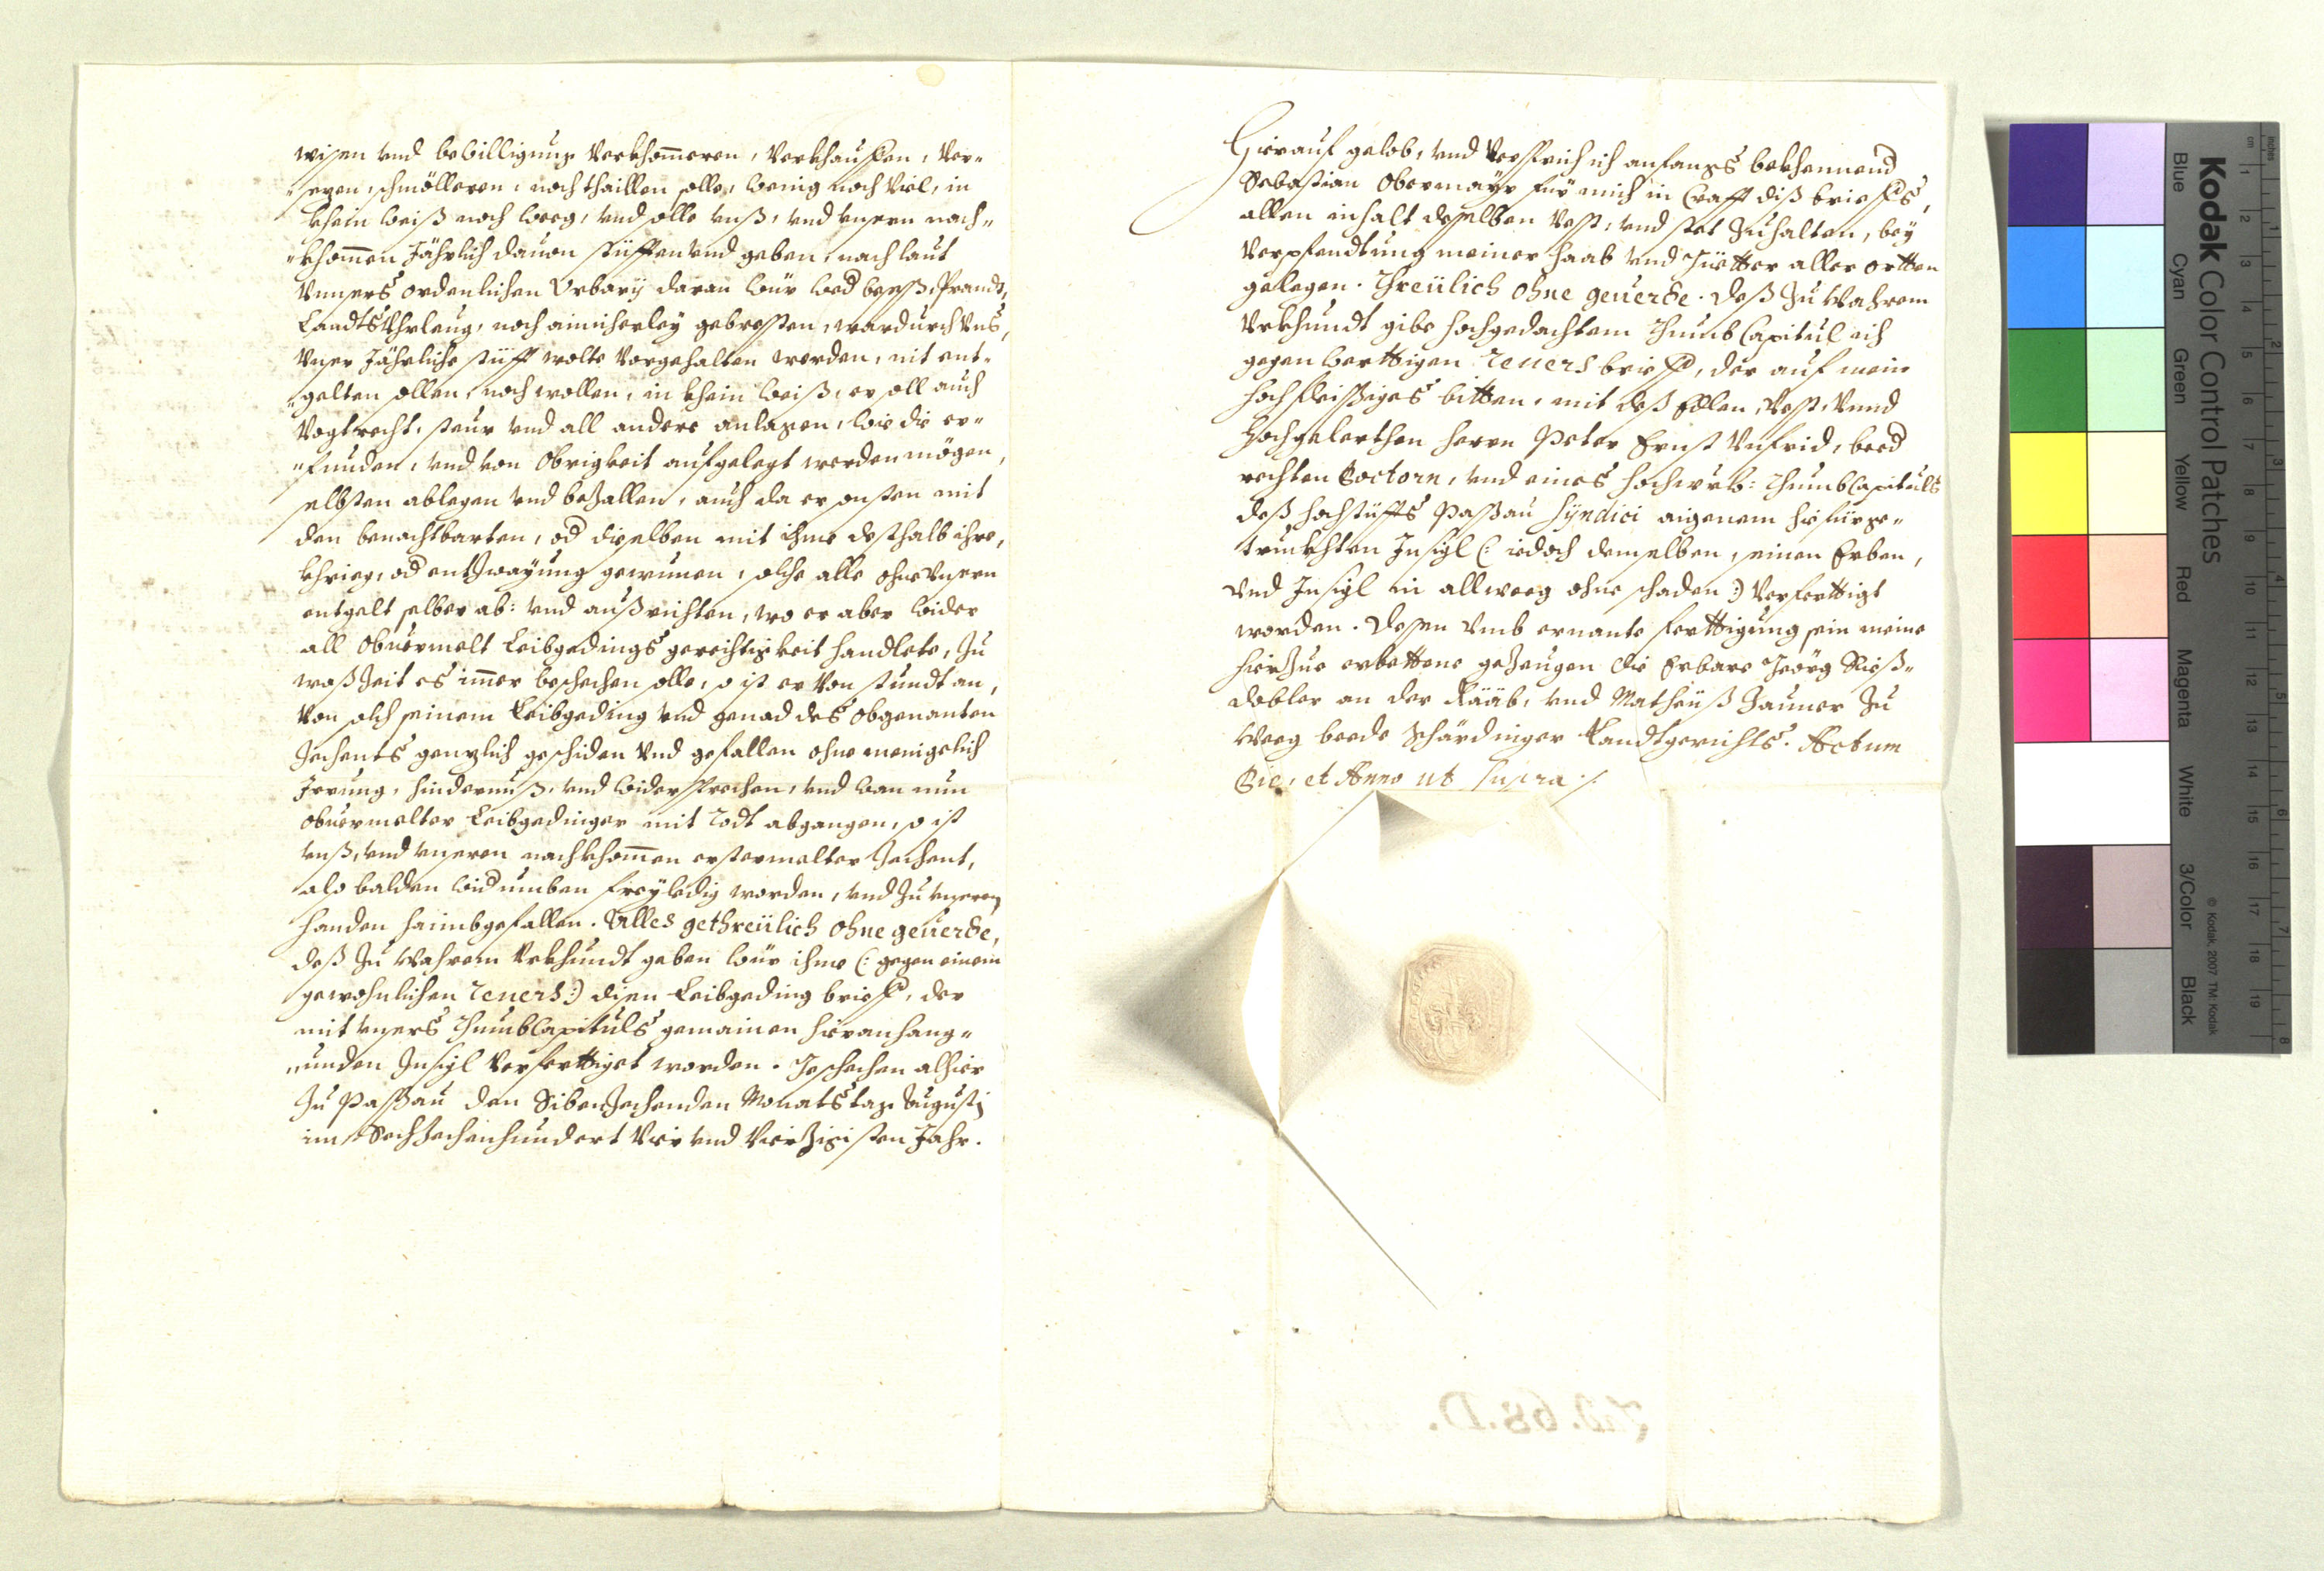 wissen vnd bewilligung verkhom̄eren, verkhauffen, ver-
„sezen, schmölleren, noch thaillen solle, wenig noch viel, in
khein weiß noch weeg, vnd solle vnß, vnd vnsern nach„
„khom̄en Jährlich dauon stüfften vnd geben, nach laut
Vnnsers ordenlichen Vrbarÿ daran wür wed byeß, Prandt,
Landts Vhrleug, noch ainicherley gebresten, wardurch Vnß,
Vnser Jährliche stüfft wolte vorgehalten werden, nit ent-
„gelten sollen, noch wollen, in khein weiß, er soll auch
Vogtrecht, steur vnd all andere anlagen, wie die er„
„funden, vnd von Obrigkeit aufgelegt werden mögen,
selbsten ablegen vnd bezallen, auch da er onsten mit
den benachtbarten, od dieselben mit ihme desthalb ihre,
khrieg, od entzwayung gewunen, solche alle ohne vnsern
entgelt selber ab: vnd außrichten, wo er aber wider
all Obuermelt Leibgedings gerechtigkeit handlete, zu
waß zeit es im̄er beschechen solle, so ist er von stundt an,
von solch seinem Leibgeding vnd genad des obgenanten
Zechents genzlich geschiden vnd gefallen ohne menigelich
Irrung, hindernuß, vnd widersprechen, vnd wan nun
obuermelter Leibgedinger mit Todt abgangen, so ist
vnß, vnd vnseren nachkhom̄en erstermelter Zechent,
also balden widumben freyledig worden, vnd zu vnseren
handen haimbgefallen. Alles gethreülich ohne geuerde,
deß zu wahrem Vrkhundt geben wür ihme (: gegen einem
gewohnlichen reuers :) disen Leibgeding brieff, der
mit vnsers Thumb Capituls gemainen hieranhang„
„unden Insigl verferttiget worden. Geschechen alhier
zu Paßau den Sibenzechenden Monatstag Augustj
im Sechzechenhundert Vier vnd Vierzigisten Jahr.
Hierauf gelob, vnd versprich ich anfangs bekhennend
Sebastian Obermaÿr für mich in Crafft diß brieffs,
allen inhalt desselben vest, vnd stet zuhalten, beÿ
verpfendtung meiner haab vnd Güetter aller ortten
gelegen. Threülich ohne geuerde. Deß zu Wahrem
Vrkhundt gibe hochgedachtem Thumb Capitul ich
gegenwerttigen reuers brieff, der auf mein
hochfleissiges bitten, mit deß Edlen, Vest, vnnd
Hochgelerthen herrn Peter Ernst Vnfrid, beed
rechten Doctorn, vnd eines hochwürb: Thumb Capituls
deß hochstüffts Paßau Sÿndici aigenem hiefürge„
truckhten Insigl (: iedoch demselben, seinen Erben,
vnd Insigl in allweeg ohne schaden :) verferttigt
worden. Dessen vmb ernante ferttigung sein meine
hierzue erbettene gezeugen die Erbare Geörg Rieß„
dobler an der Rääb, vnd Matheüß Zauner zu
Weeg beede Schärdinger Landtgerichts. Actum
Die, et Anno ut supra ./.